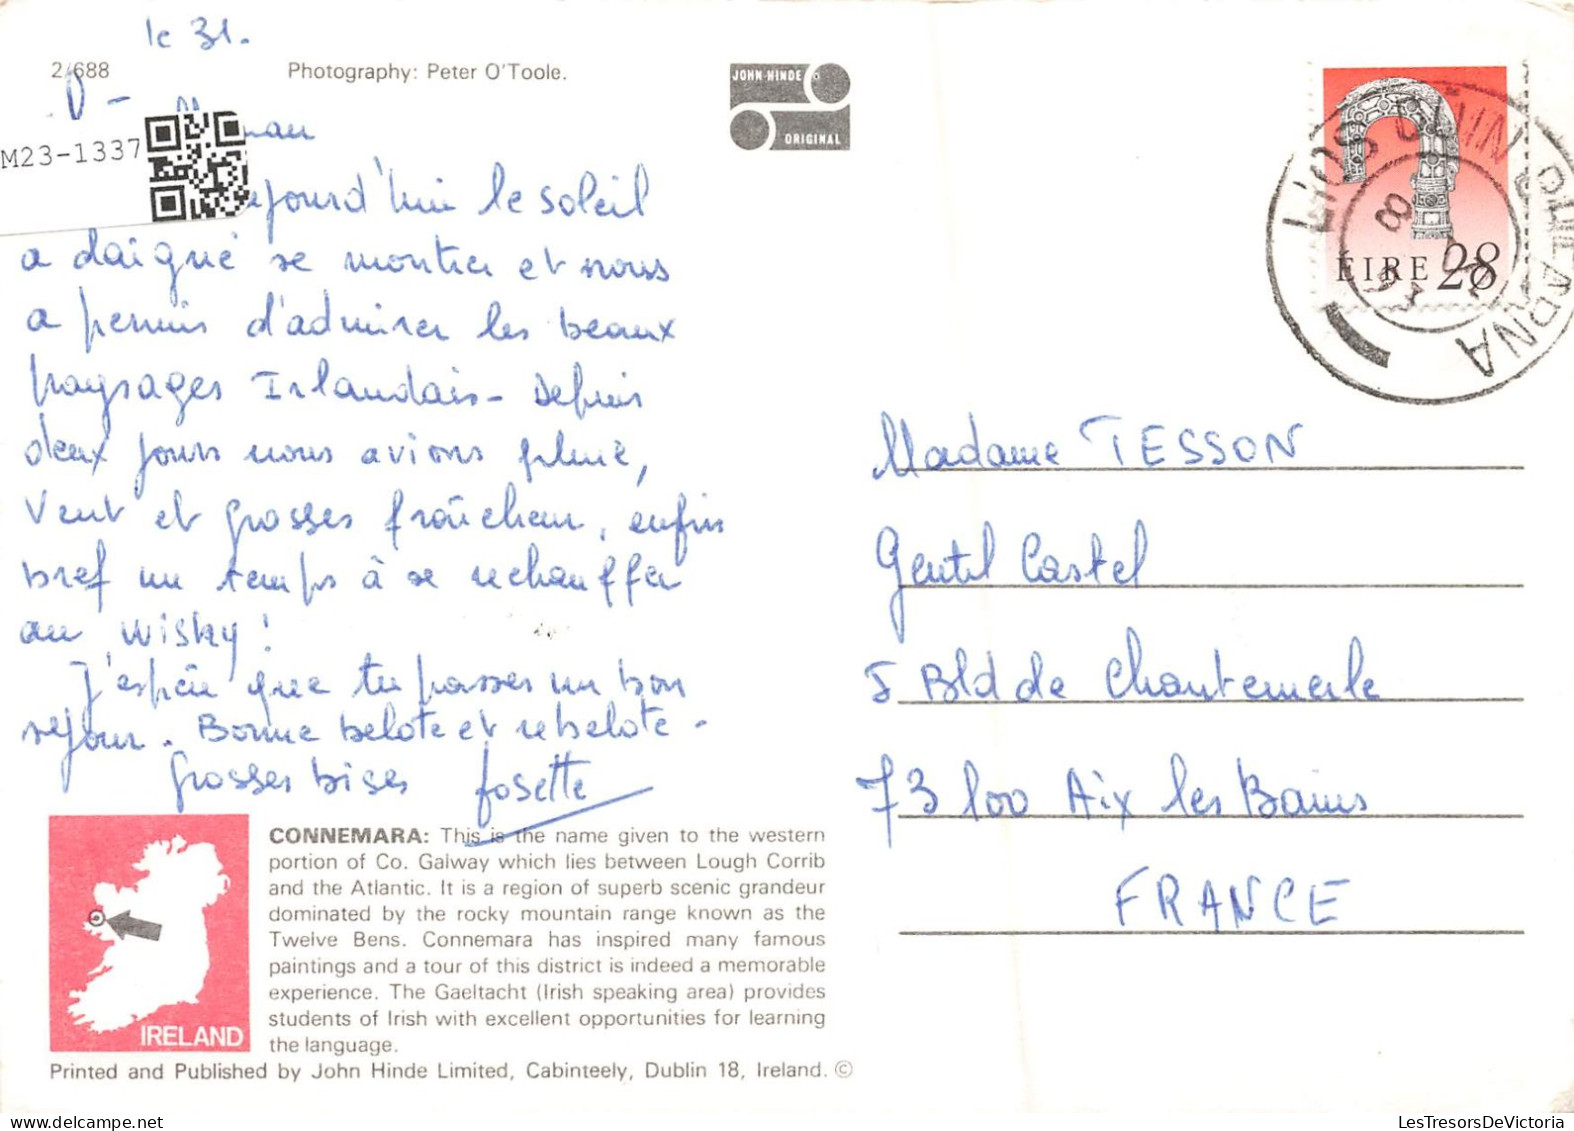 le 31.
2/688
Photography: Peter O'Toole.
JOHN HINDE
ORIGINAL
M23-1337
aujourd'hui le soleil
a daigné se montrer et nous
a permis d'admirer les beaux
paysages Irlandais - Depuis
deux jours nous avions pluie,
vent et grosses fraîcheur, enfin
bref un temps à se rechauffer
au wisky !
J'espère que tu passes un bon
sejour. Bonne belote et rebelote -
grosses bises Josette
CONNEMARA: This is the name given to the western
portion of Co. Galway which lies between Lough Corrib
and the Atlantic. It is a region of superb scenic grandeur
dominated by the rocky mountain range known as the
Twelve Bens. Connemara has inspired many famous
paintings and a tour of this district is indeed a memorable
experience. The Gaeltacht (Irish speaking area) provides
students of Irish with excellent opportunities for learning
the language.
IRELAND
Printed and Published by John Hinde Limited, Cabinteely, Dublin 18, Ireland. ©
ÉIRE 28
LIOS DÚIN BHEARNA
Madame TESSON
Gentil Castel
5 Bld de Chantemerle
73 100 Aix les Bains
FRANCE
LesTresorsDeVictoria